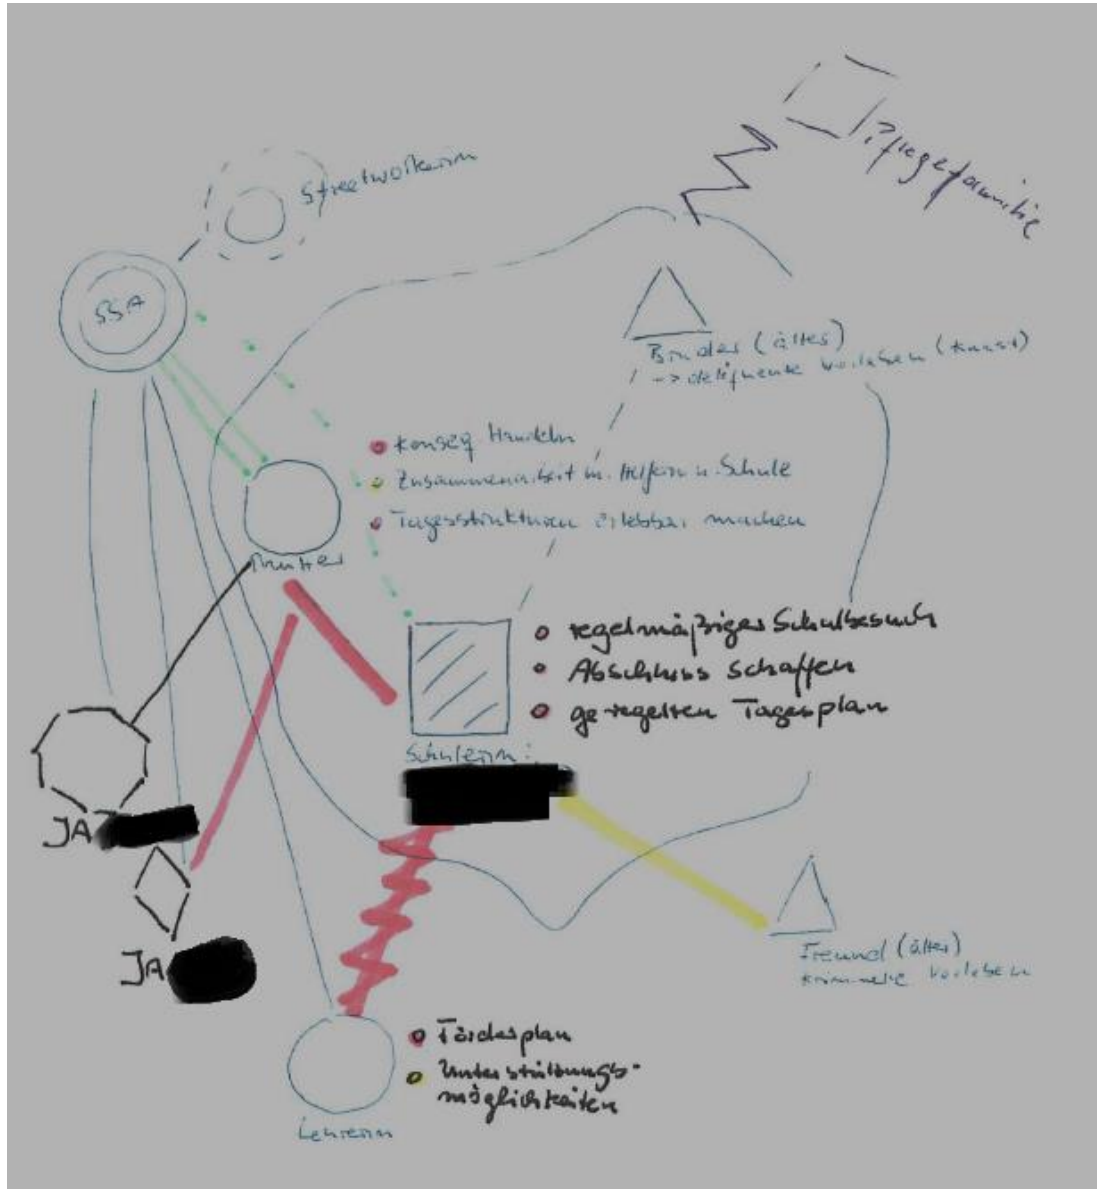 Streetworkerin
Pflegefamilie
SSA
Bruder (älter)
-> delinquente Vorleben (Knast)
Konseq Handeln
Zusammenarbeit m. Helfern u. Schule
Tagesstrukturen erlebbar machen
Mutter
regelmäßiger Schulbesuch
Abschluss schaffen
geregelten Tagesplan
Schülerin:
JA
JA
Freund (älter)
kriminelle Vorleben
Förderplan
Unterstützungs-
möglichkeiten
Lehrerin